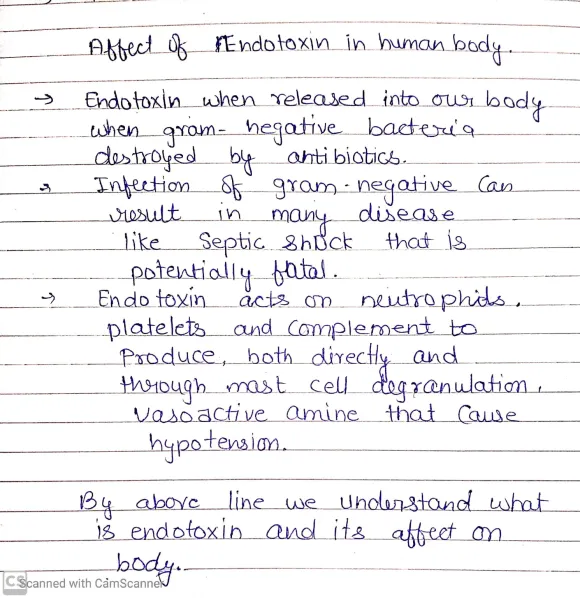 Affect of Endotoxin in human body.
→ Endotoxin when released into our body
when gram-negative bacteria
destroyed by antibiotics.
→ Infection of gram-negative Can
result in many disease
like Septic Shock that is
potentially fatal.
→ Endo toxin acts on neutrophids,
platelets and complement to
Produce, both directly and
through mast cell degranulation,
vasoactive amine that Cause
hypotension.
By above line we understand what
is endotoxin and its affect on
body.
CS Scanned with CamScanner